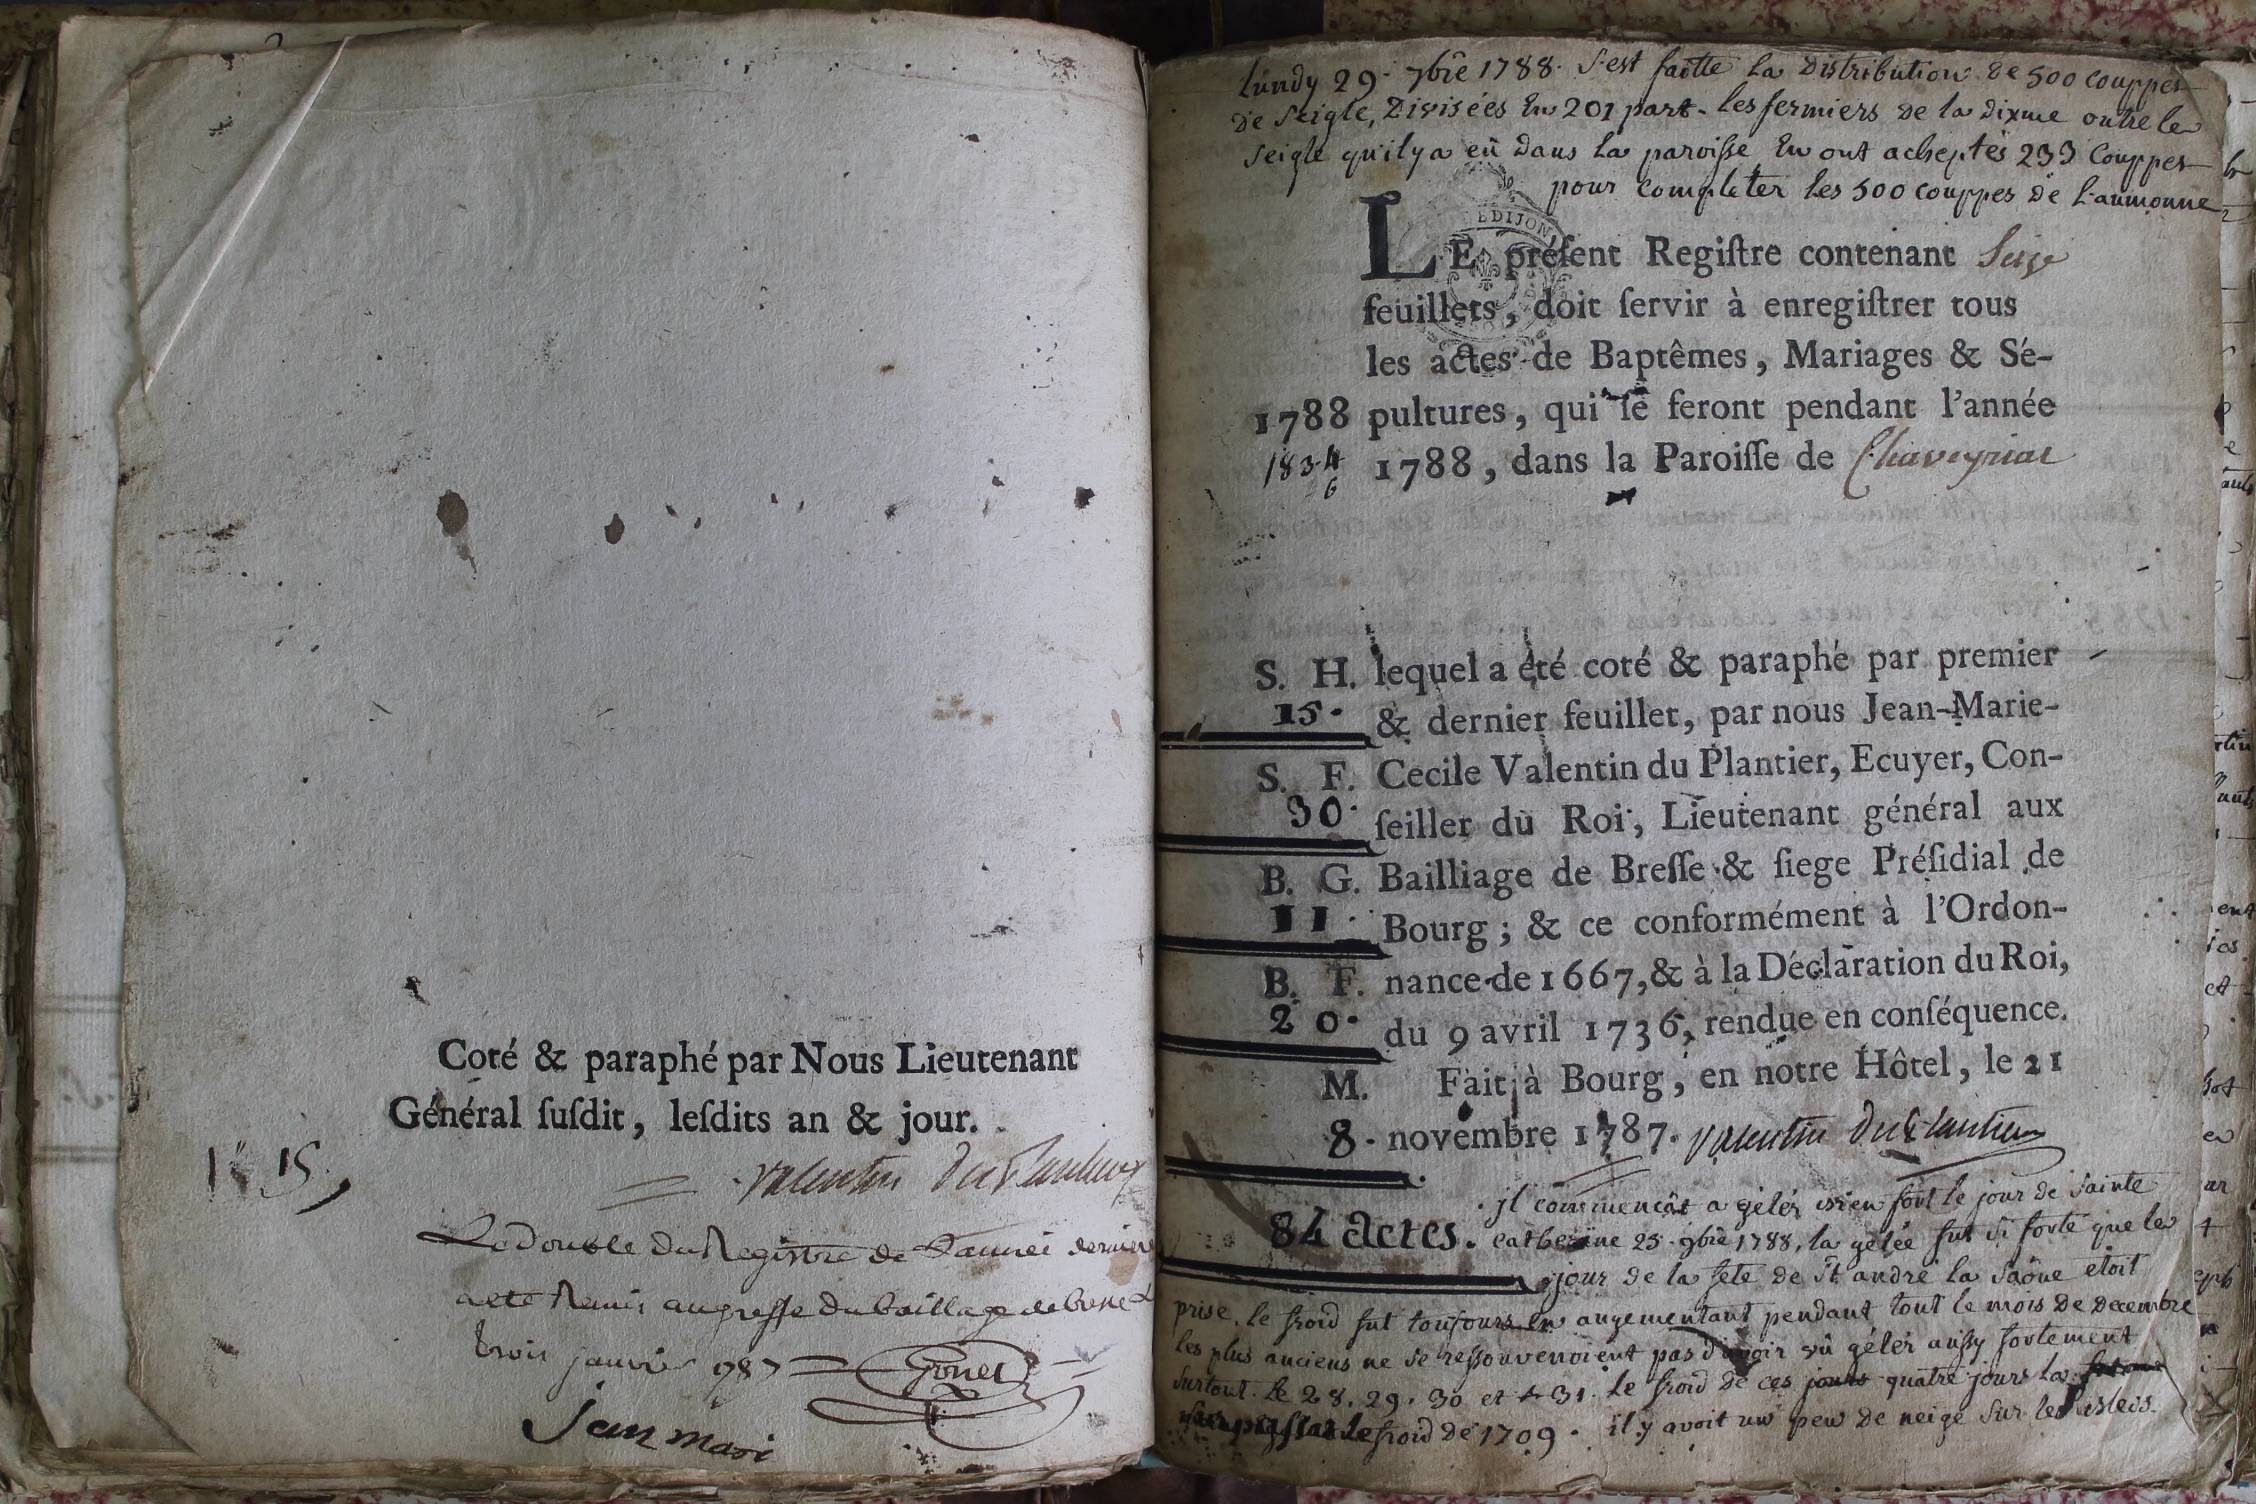 Coté & paraphé par Nous Lieutenant
Général ſuſdit, leſdits an & jour.
15
Valentin Du Plantier
Le double du Registre de L'année derniere
a eté Remis au greffe du bailliage de bresse
trois janvier 1787
Jean mari
Lundy 29. 7bre 1788. s'est faitte la distribution de 500 couppes
de seigle, Divisées En 201 part. les fermiers de la dixme outre le
seigle qu'il y a eü dans la paroisse En ont acheptés 233 Couppes
pour completer les 500 couppes de l'aumonne
EDIJON
LE préſent Regiſtre contenant Seize
feuillets, doit ſervir à enregiſtrer tous
les actes de Baptêmes, Mariages & Sé-
1788 pultures, qui ſe feront pendant l'année
1834 1788, dans la Paroiſſe de Chaveyriat
6
S. H. lequel a été coté & paraphé par premier
15. & dernier feuillet, par nous Jean-Marie-
S. F. Cecile Valentin du Plantier, Ecuyer, Con-
30. ſeiller du Roi, Lieutenant général aux
B. G. Bailliage de Breſſe & ſiege Préſidial de
11. Bourg ; & ce conformément à l'Ordon-
B. F. nance de 1667, & à la Déclaration du Roi,
20. du 9 avril 1736, rendue en conſéquence.
M. Fait à Bourg, en notre Hôtel, le 21
8. novembre 1787. Valentin Du Plantier
jl commençat a gélér bien fort le jour de Sainte
84 actes. catherine 25. 9bre 1788, la gélée fut si forte que le
jour de la fete de st andré la saône etoit
prise. le froid fut toujours en augementant pendant tout le mois de decembre
les plus anciens ne se ressouvenoient pas d'avoir vû gélér aussy fortement
surtout. le 28. 29. 30 et 31. le froid de ces quatre jours la
surpassat le froid de 1709. il y avoit un peu de neige sur les